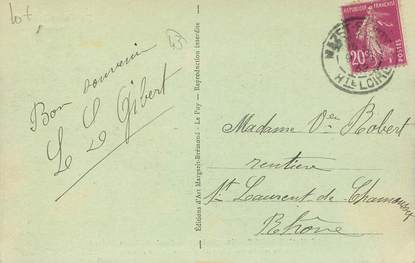 lot
43
Bon souvenir
L L Gibert
Editions d'Art Margerit-Brémond - Le Puy - Reproduction interdite
REPUBLIQUE FRANÇAISE
POSTES
20c
HTE LOIRE
Madame Vve Robert
rentière
St Laurent de Chamousset
Rhône